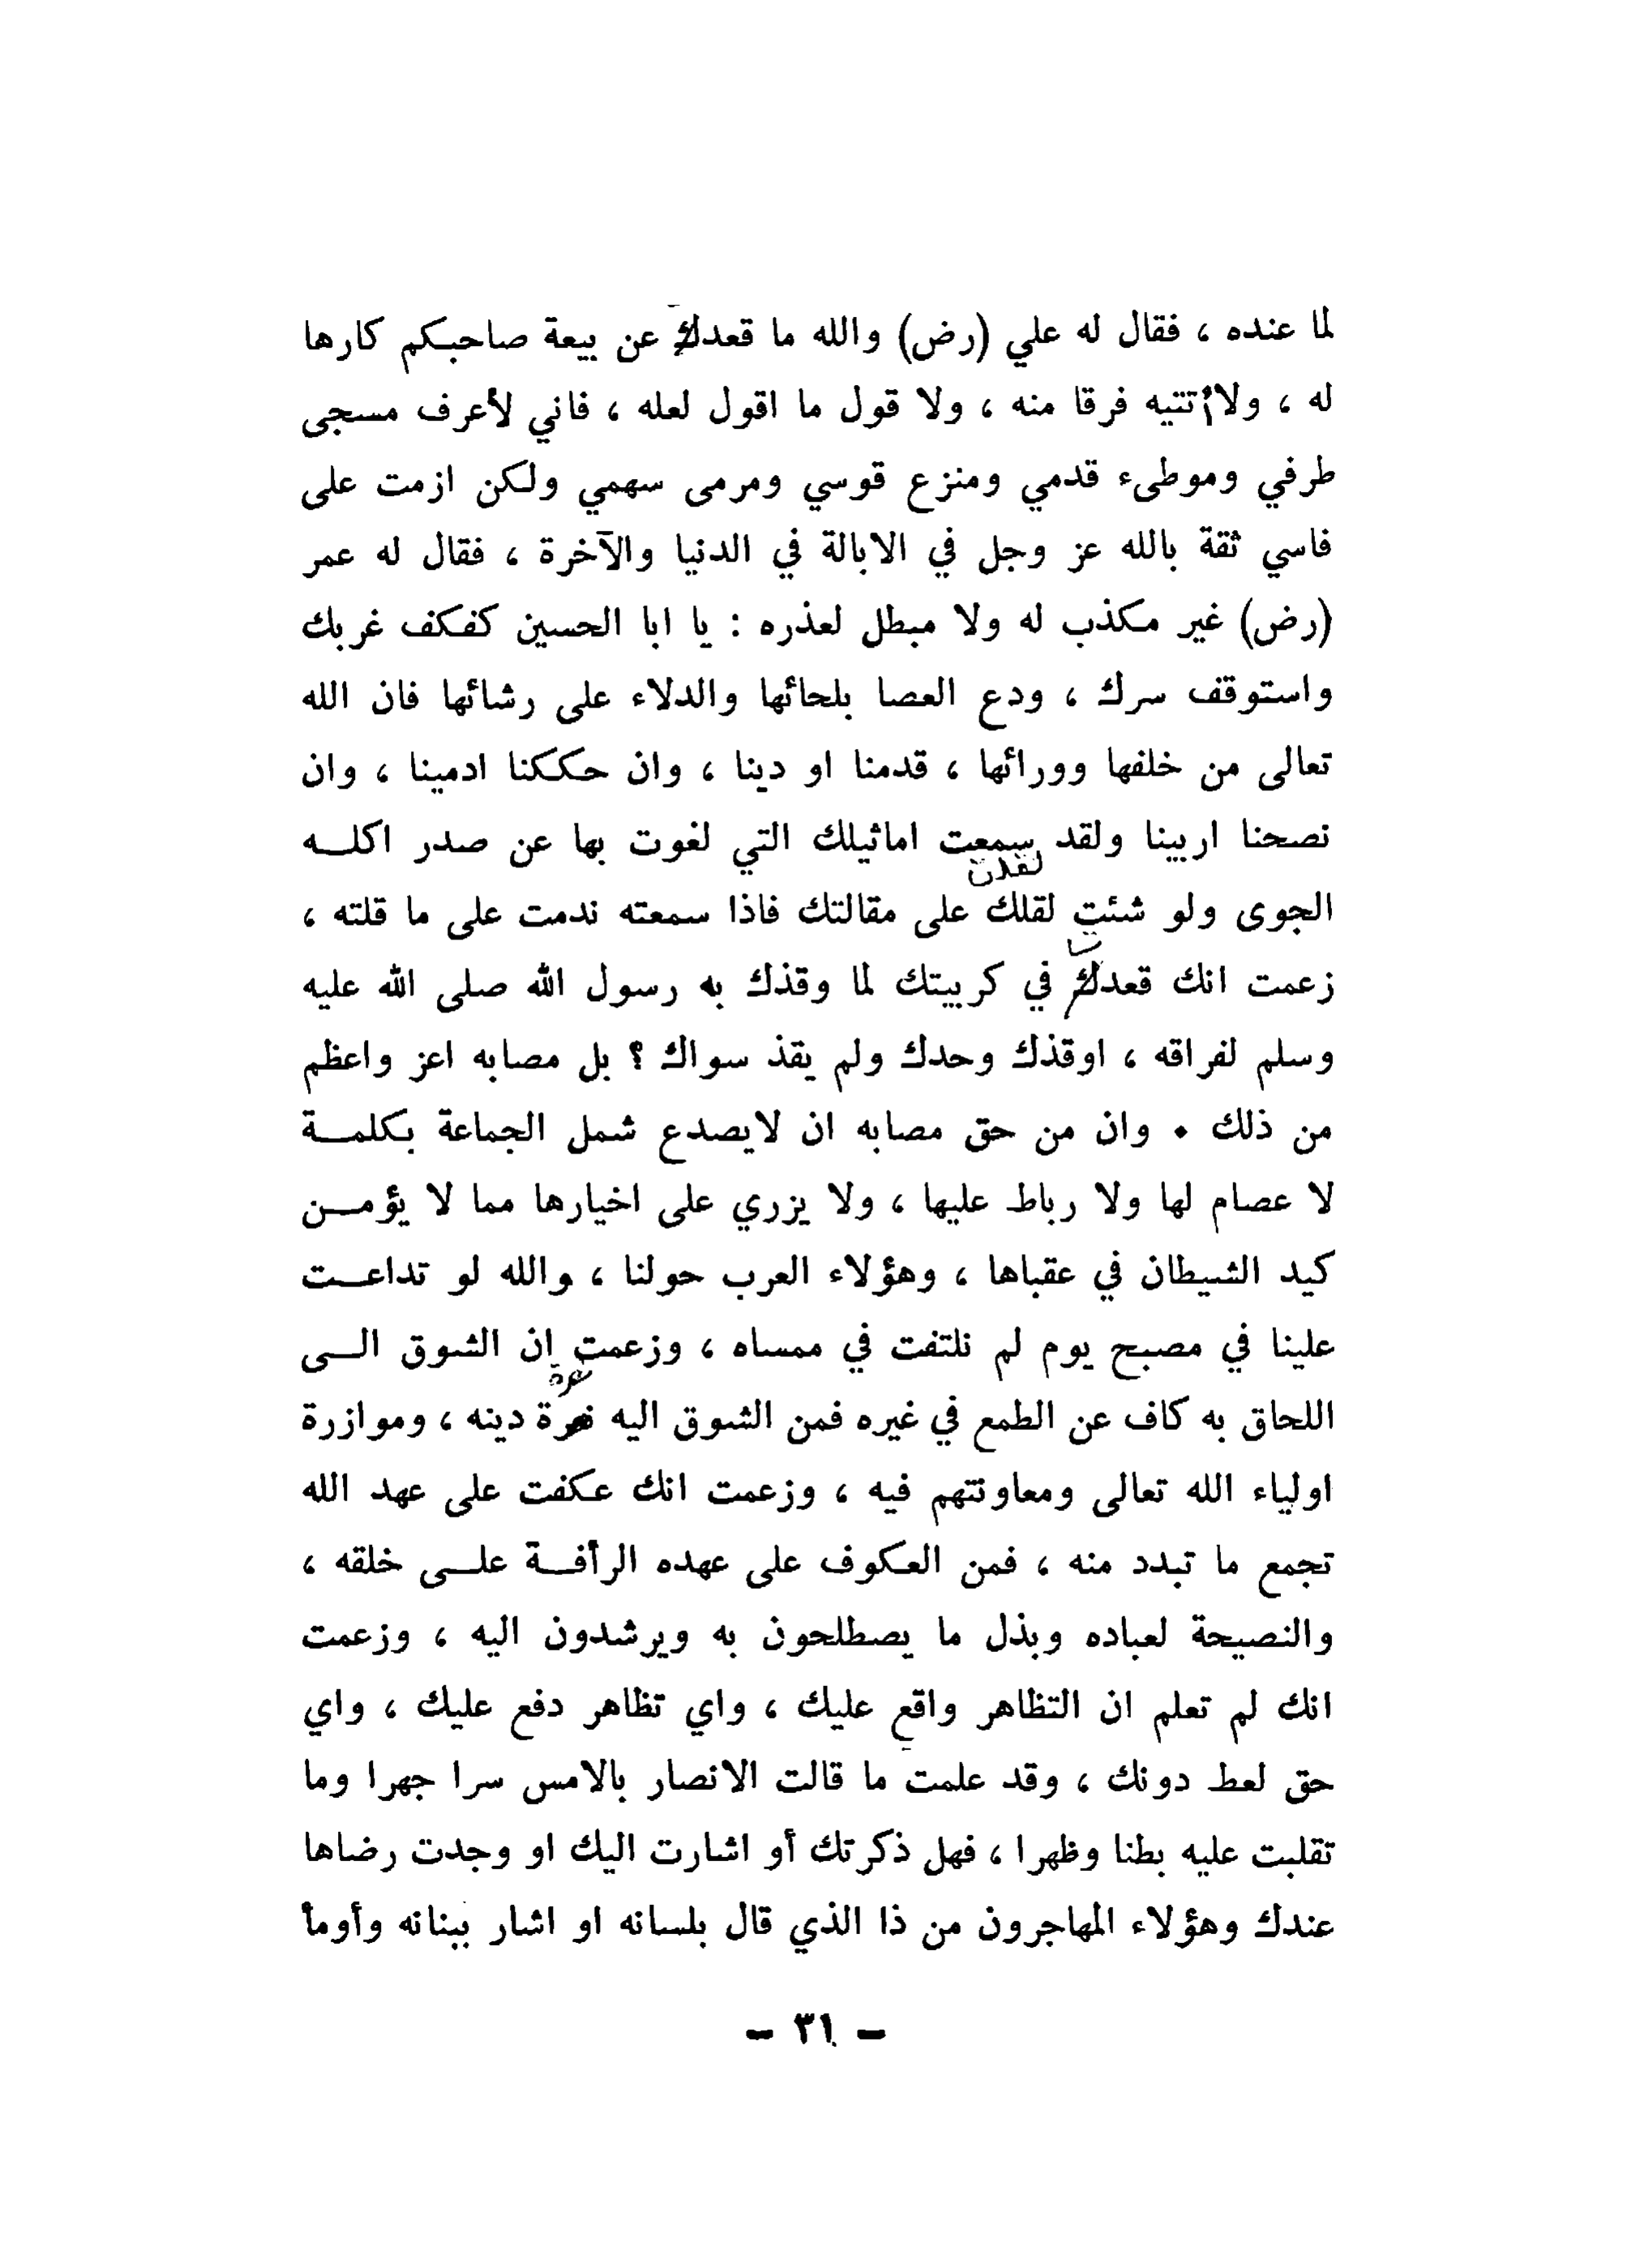 لما عنده ، فقال له علي (رض) والله ما قعدك عن بيعة صاحبكم كارها
له ، ولا أتتيه فرقا منه ، ولا قول ما اقول لعله ، فاني لأعرف مسجى
طرفي وموطىء قدمي ومنزع قوسي ومرمى سهمي ولكن ازمت على
فاسي ثقة بالله عز وجل في الابالة في الدنيا والآخرة ، فقال له عمر
(رض) غير مكذب له ولا مبطل لعذره : يا ابا الحسين كفكف غربك
واستوقف سرك ، ودع العصا بلحائها والدلاء على رشائها فان الله
تعالى من خلفها وورائها ، قدمنا او دينا ، وان حككنا ادمينا ، وان
نصحنا اربينا ولقد سمعت اماثيلك التي لغوت بها عن صدر اكلـــه
الجوى ولو شئت لقلك على مقالتك فاذا سمعته ندمت على ما قلته ،
زعمت انك قعدك في كربيتك لما وقذك به رسول الله صلى الله عليه
وسلم لفراقه ، اوقذك وحدك ولم يقذ سواك ؟ بل مصابه اعز واعظم
من ذلك ٠ وان من حق مصابه ان لايصدع شمل الجماعة بكلمـــة
لا عصام لها ولا رباط عليها ، ولا يزري على اخيارها مما لا يؤمـــن
كيد الشيطان في عقباها ، وهؤلاء العرب حولنا ، والله لو تداعـــت
علينا في مصبح يوم لم نلتفت في ممساه ، وزعمت ان الشوق الـــى
اللحاق به كاف عن الطمع في غيره فمن الشوق اليه نصرة دينه ، وموازرة
اولياء الله تعالى ومعاونتهم فيه ، وزعمت انك عكفت على عهد الله
تجمع ما تبدد منه ، فمن العكوف على عهده الرأفـــة علـــى خلقه ،
والنصيحة لعباده وبذل ما يصطلحون به ويرشدون اليه ، وزعمت
انك لم تعلم ان التظاهر واقع عليك ، واي تظاهر دفع عليك ، واي
حق لعط دونك ، وقد علمت ما قالت الانصار بالامس سرا جهرا وما
تقلبت عليه بطنا وظهرا ، فهل ذكرتك أو اشارت اليك او وجدت رضاها
عندك وهؤلاء المهاجرون من ذا الذي قال بلسانه او اشار ببنانه وأومأ
– ٣١ –